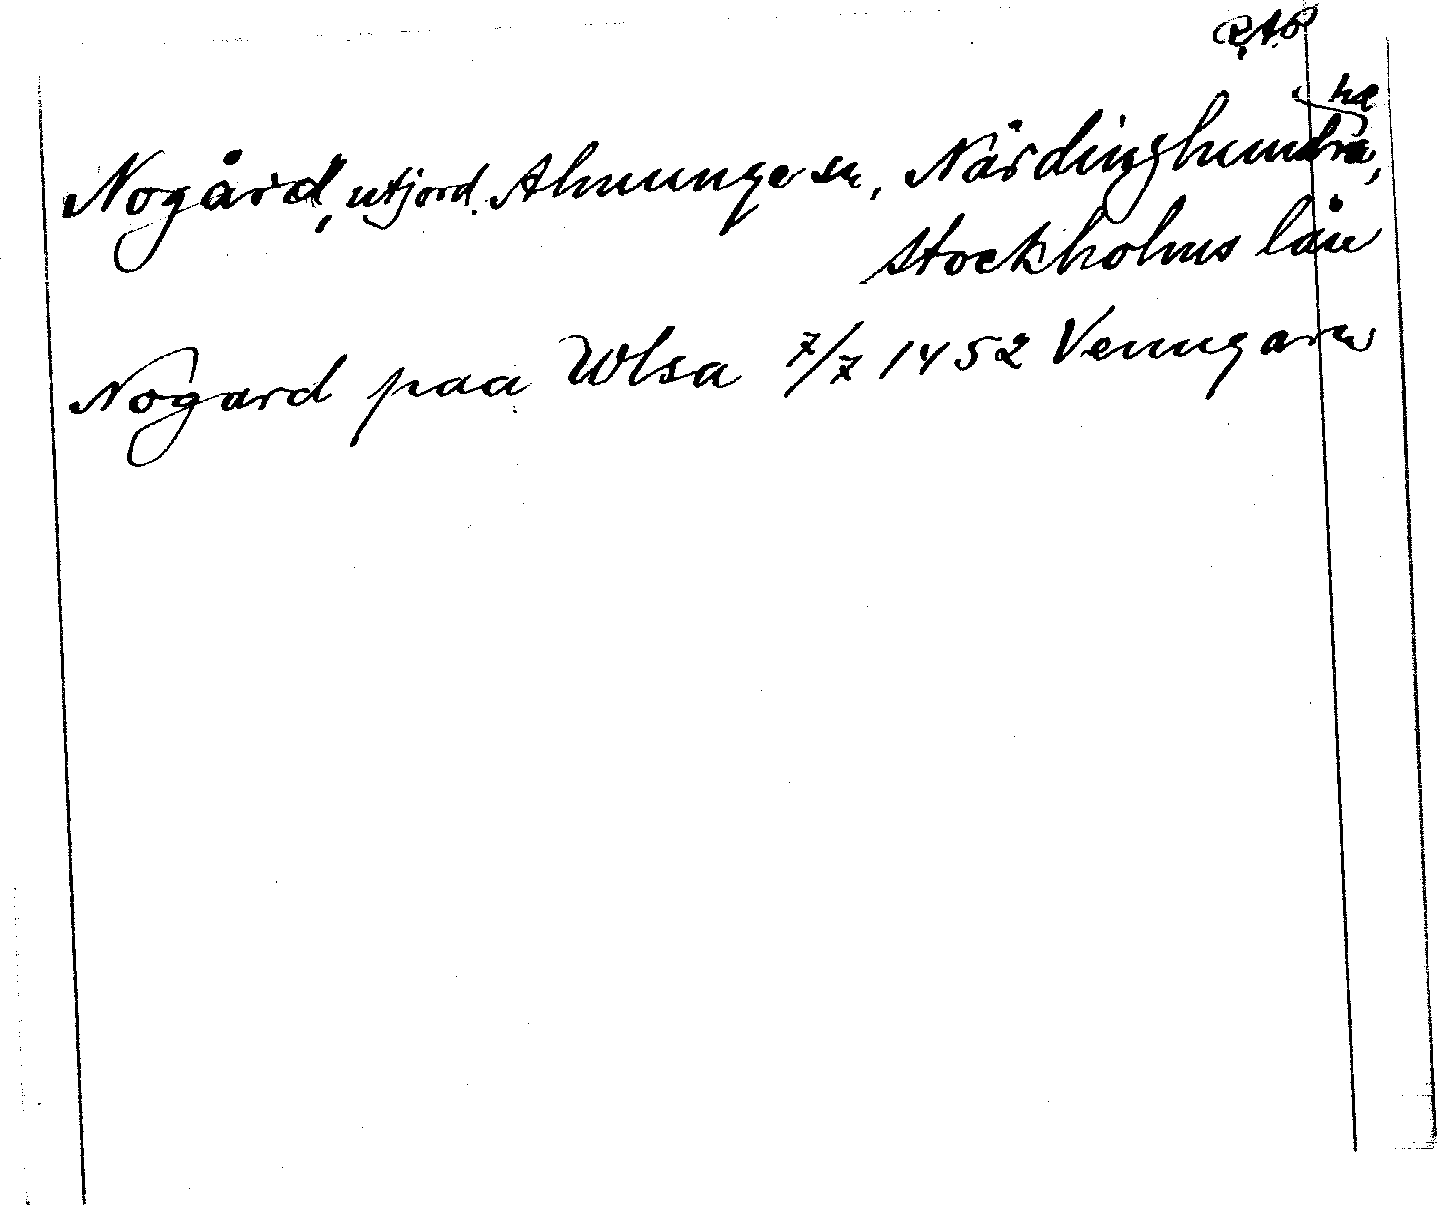 RAP
Nogård, utjord. Almunge sn, Närdinghundra hd,
Stockholms län
Nogard paa Wlsa 7/7 1452 Venngarn